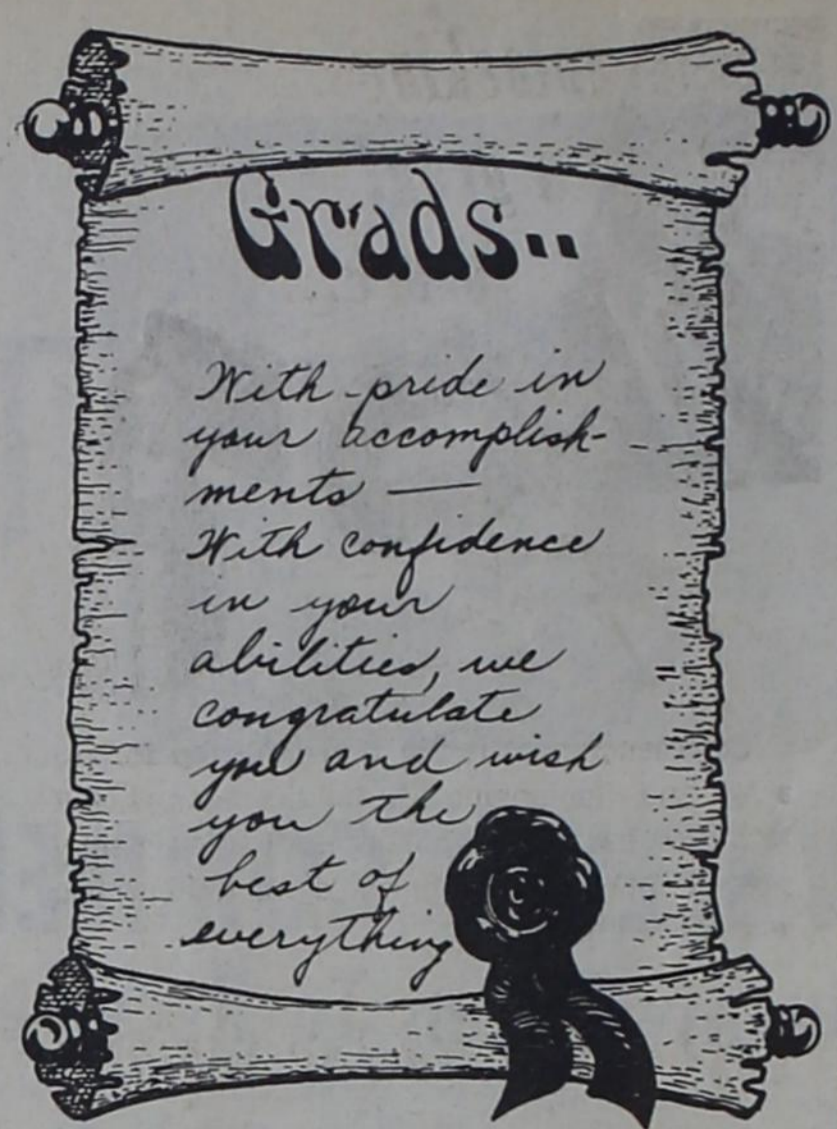 Grads..
With pride in
your accomplish-
ments —
With confidence
in your
abilities, we
congratulate
you and wish
you the
best of
everything